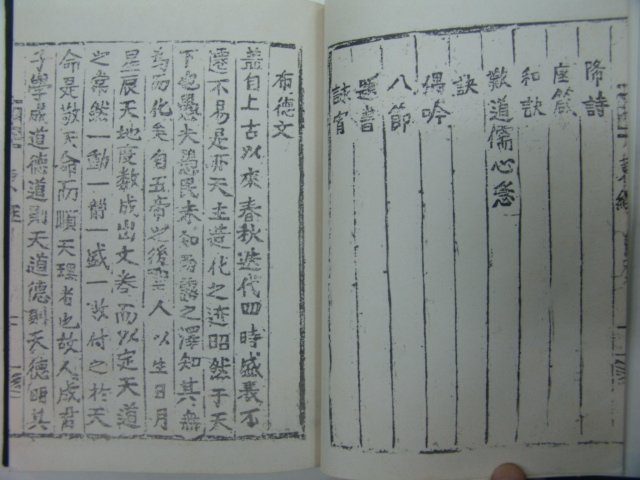 降詩
座箴
和訣
歎道儒心急
訣
偶吟
八節
題書
詠宵
布德文
盖自上古以來春秋迭代四時盛衰不
遷不易是亦天主造化之迹昭然于天
下也愚夫愚民未知雨露之澤知其無
爲而化矣自五帝之後聖人以生日月
星辰天地度數成出文卷而以定天道
之常然一動一靜一盛一敗付之於天
命是敬天命而順天理者也故人成君
子學成道德道則天道德則天德明其